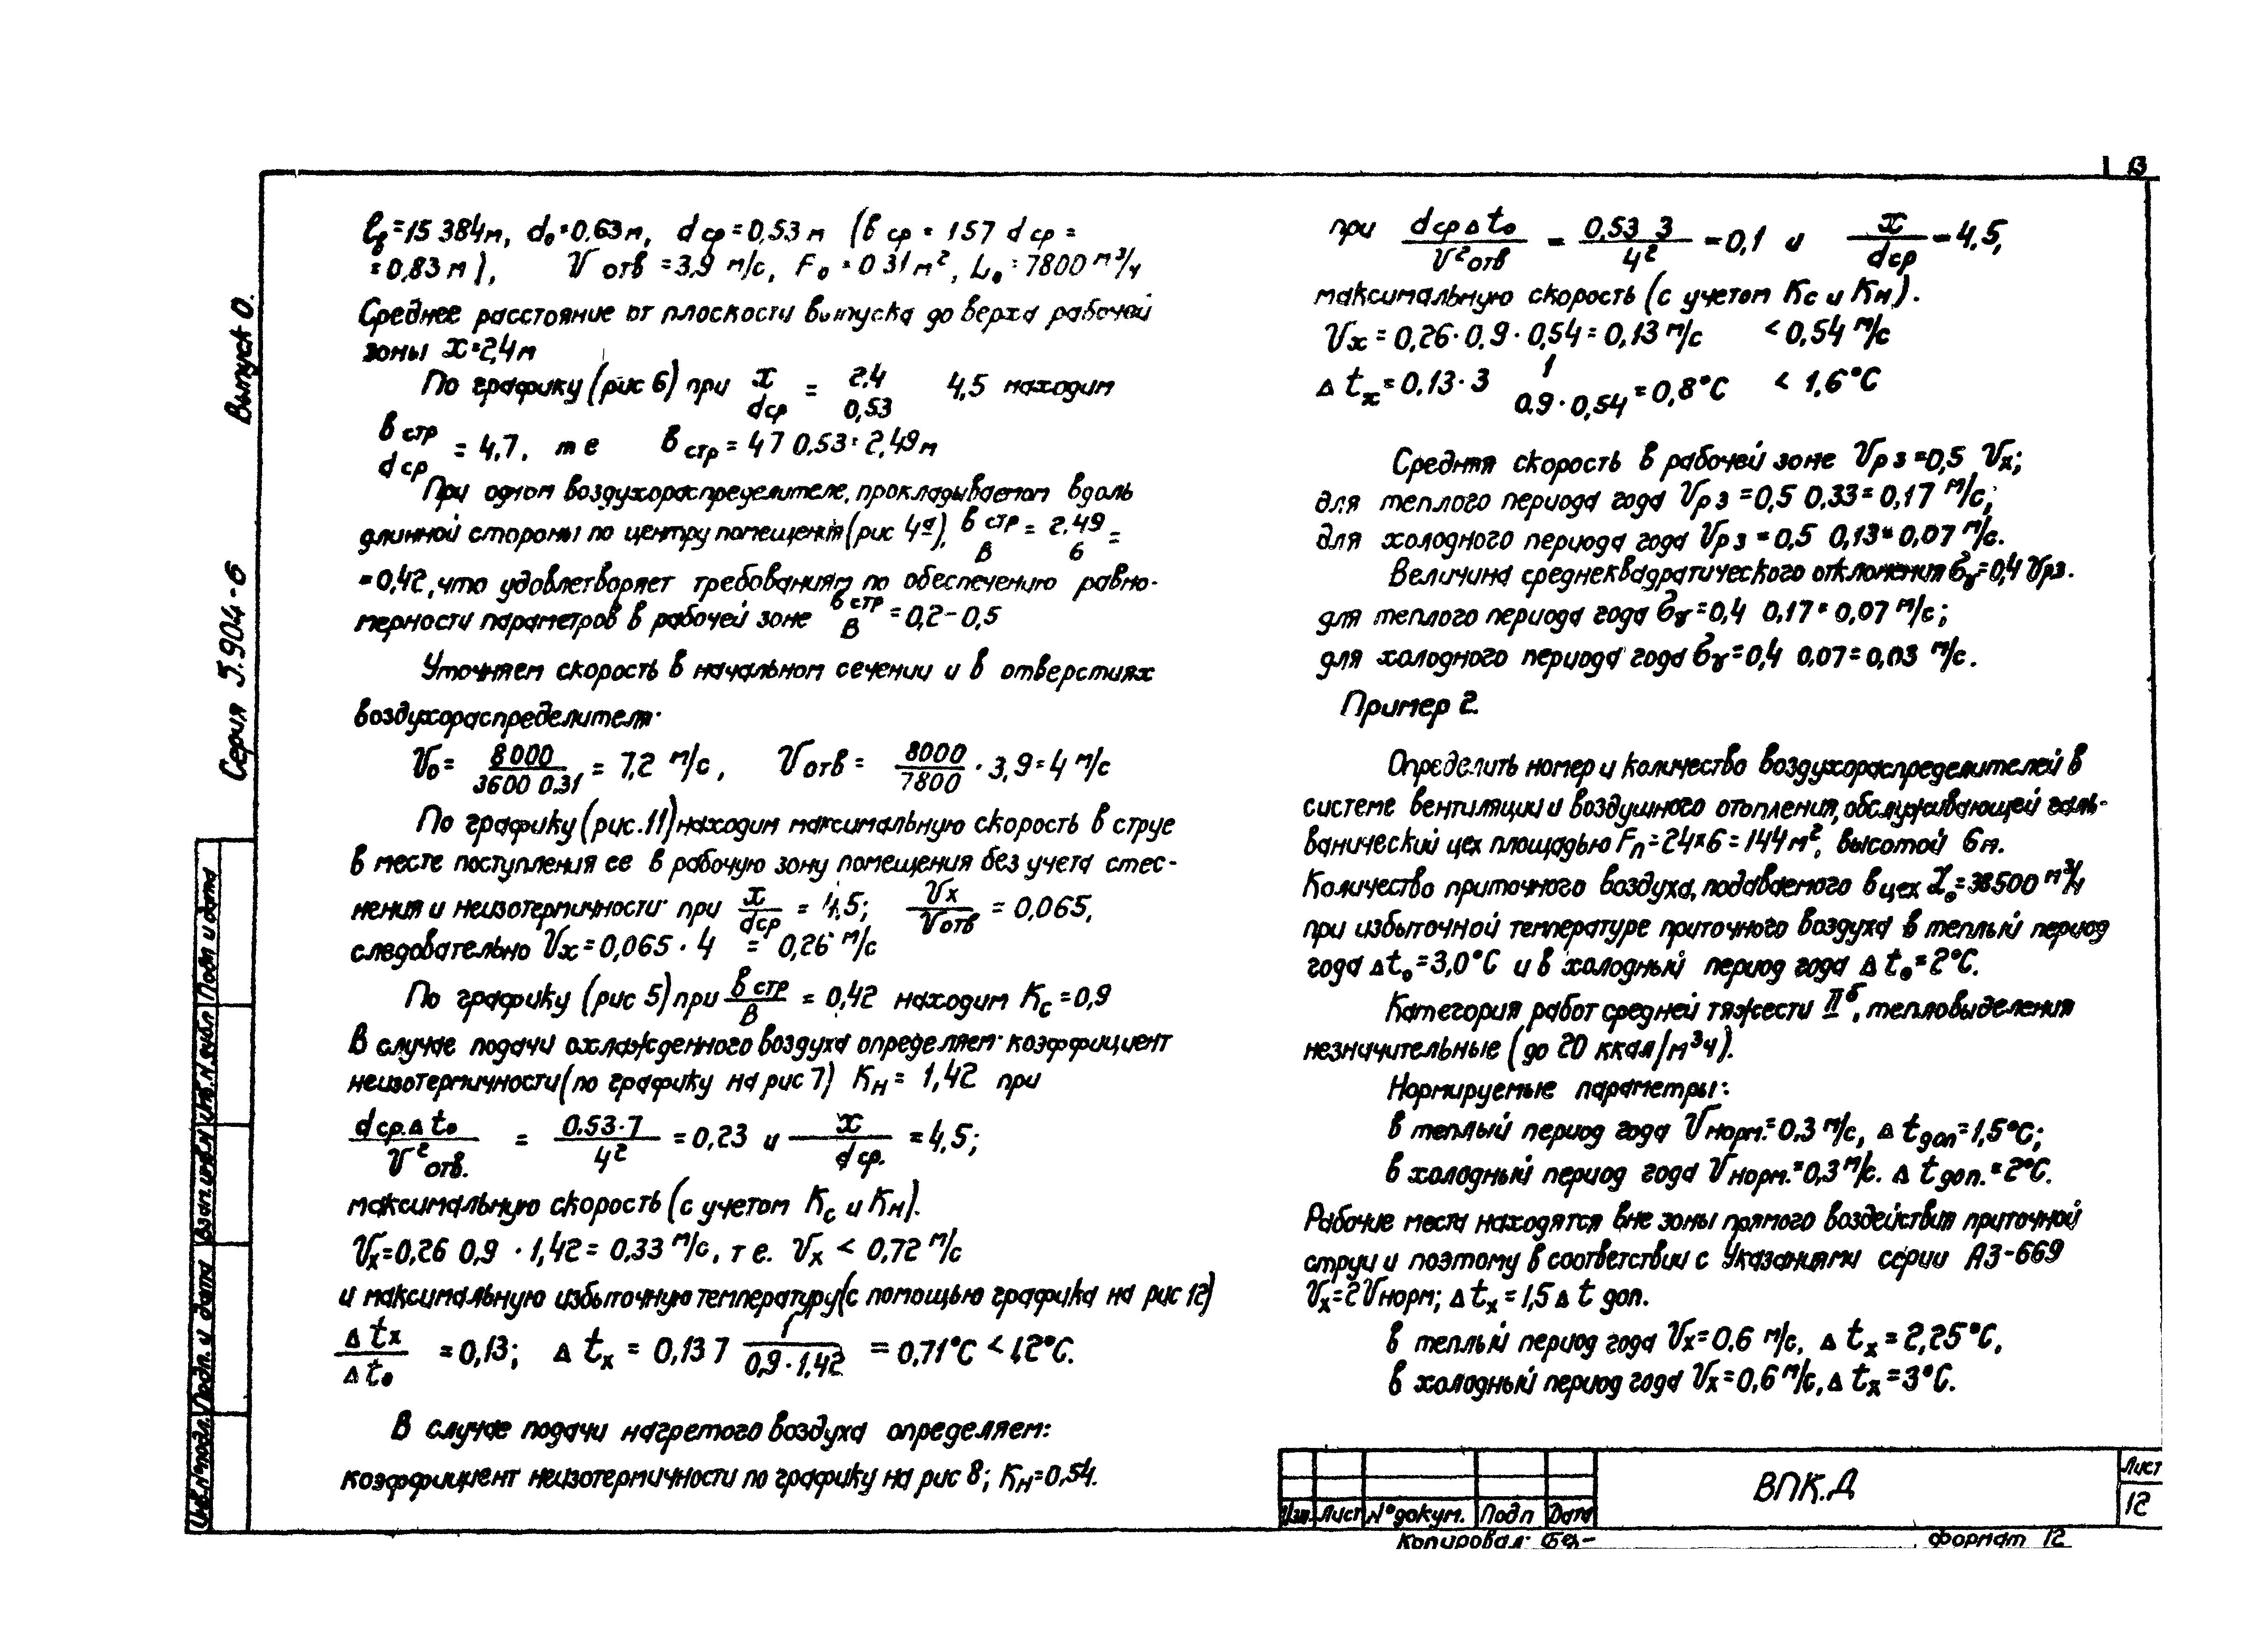 13
Выпуск 0.
Серия 5.904-6
ℓв=15 384м, d₀=0,63м, dср=0,53м (в ср = 1 57 dср =
=0,83 м), Vотв =3,9 м/с, F₀ = 0 31 м², L₀ = 7800 м³/ч
Среднее расстояние от плоскости выпуска до верха рабочей
зоны x=2,4м
По графику (рис 6) при x/dср = 2,4/0,53 4,5 находим
в стр/dср = 4,7, т е в стр = 4 7 0,53 = 2,49 м
При одном воздухораспределителе, прокладываемом вдоль
длинной стороны по центру помещения (рис 4а), в стр/В = 2,49/6 =
=0,42, что удовлетворяет требованиям по обеспечению равно-
мерности параметров в рабочей зоне в стр/В = 0,2-0,5
Уточняем скорость в начальном сечении и в отверстиях
воздухораспределителя·
V₀= 8000/3600 0.31 = 7,2 м/с, Vотв = 8000/7800 · 3,9=4 м/с
По графику (рис.11) находим максимальную скорость в струе
в месте поступления ее в рабочую зону помещения без учета стес-
нения и неизотермичности· при x/dср = 4,5; Vx/Vотв = 0,065,
следовательно Vx=0,065 · 4 = 0,26 м/с
По графику (рис 5) при в стр/В = 0,42 находим Кс =0,9
В случае подачи охлажденного воздуха определяем· коэффициент
неизотермичности (по графику на рис 7) Кн = 1,42 при
dср.Δt₀/V²отв. = 0.53·7/4² =0,23 и x/dср. =4,5;
максимальную скорость (с учетом Кс и Кн).
Vx=0,26 0,9 · 1,42= 0,33 м/с, т е. Vx < 0,72 м/с
и максимальную избыточную температуру (с помощью графика на рис 12)
Δtx/Δt₀ =0,13; Δtx = 0,13 7 1/0,9·1,42 = 0,71°С < 1,2°С.
В случае подачи нагретого воздуха определяем:
коэффициент неизотермичности по графику на рис 8; Кн=0,54.
при dср Δt₀/V²отв = 0,53 3/4² =0,1 и x/dср =4,5,
максимальную скорость (с учетом Кс и Кн).
Vx = 0,26· 0,9 · 0,54 = 0,13 м/с < 0,54 м/с
Δtx=0,13·3 1/0.9·0,54 =0,8°С < 1,6°С
Средняя скорость в рабочей зоне Vр з =0,5 Vx;
для теплого периода года Vр з =0,5 0,33= 0,17 м/с;
для холодного периода года Vр з =0,5 0,13= 0,07 м/с.
Величина среднеквадратического отклонения бv=0,4 Vрз.
для теплого периода года бv=0,4 0,17= 0,07 м/с;
для холодного периода года бv=0,4 0,07=0,03 м/с.
Пример 2.
Определить номер и количество воздухораспределителей в
системе вентиляции и воздушного отопления, обслуживающей галь-
ванический цех площадью Fп=24×6=144м², высотой 6м.
Количество приточного воздуха, подаваемого в цех L₀=38500 м³/ч
при избыточной температуре приточного воздуха в теплый период
года Δt₀=3,0°С и в холодный период года Δt₀=2°С.
Категория работ средней тяжести IIб, тепловыделения
незначительные (до 20 ккал/м³ч).
Нормируемые параметры:
в теплый период года Vнорм.=0,3 м/с, Δtдоп=1,5°С;
в холодный период года Vнорм.=0,3м/с. Δtдоп.=2°С.
Рабочие места находятся вне зоны прямого воздействия приточной
струи и поэтому в соответствии с Указаниями серии А3-669
Vx=2Vнорм; Δtx=1,5Δt доп.
в теплый период года Vx=0.6 м/с, Δtx=2,25°С,
в холодный период года Vx=0,6м/с, Δtx=3°С.
Подп и дата
Инв.N дубл
Взам.инв.N
Подп. и дата
Инв.N°подл.
Изм. Лист N°докум. Подп Дата
ВПК.Д
Лист
12
Копировал:
Формат 12